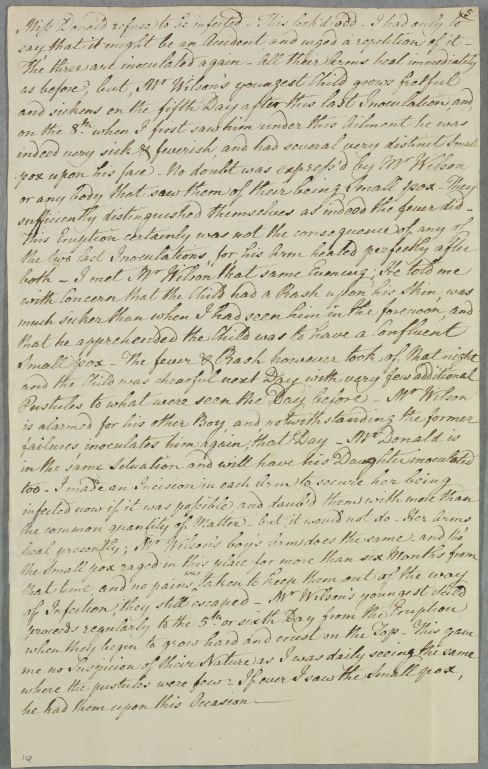 45
Miss Donald refuse to be infected - This look'd odd - I had only to
say that it might be an Accident, and urged a repetition of it -
The three are inoculated again - All their Arms heal immediately
as before, but, Mr Wilson's youngest Child grows fretful
and sickens on the fifth Day after this last Inoculation, and
on the 8th when I first saw him under this Ailment he was
indeed very sick & feverish, and had several very distinct Small
pox upon his face - No doubt was express'd by Mr Wilson
or any body that saw them of their being Small pox - They
sufficiently distinguished themselves as indeed the fever did -
This Eruption certainly was not the consequence of any of
the two last Inoculations, for his Arm healed perfectly after
both - I met Mr Wilson that same Evening; He told me
with Concern that the Child had a Rash upon his Skin, was
much sicker than when I had seen him in the forenoon, and
that he apprehended the Child was to have a Confluent
Small pox - The fever & Rash however took of that night
and the Child was chearful next Day with very few additional
Pustules to what were seen the Day before - Mr Wilson
is alarmed for his other Boy, and notwithstanding the former
failures, inoculates him again, that Day - Mr Donald is
in the same Situation and will have his Daughter inoculated
too - I made an Incision in each Arm to secure her being
infected now if it was possible, and daub'd them with more than
the common quantity of Matter - but it would not do - Her Arms
heal presently; Mr Wilson's boy's Arm does the same and tho'
the Small pox raged in this place for more than six Months from
that time, and no pains was taken to keep them out of the way
of Infection they still escaped - Mr Wilson's youngest Child
proceeds regularly to the 5th or sixth Day from the Eruption
when they begin to grow hard and crust on the Top - This gave
me no Suspicion of their Nature as I was daily seeing the same
where the pustules were few - If ever I saw the Small pox,
he had them upon this Occasion -